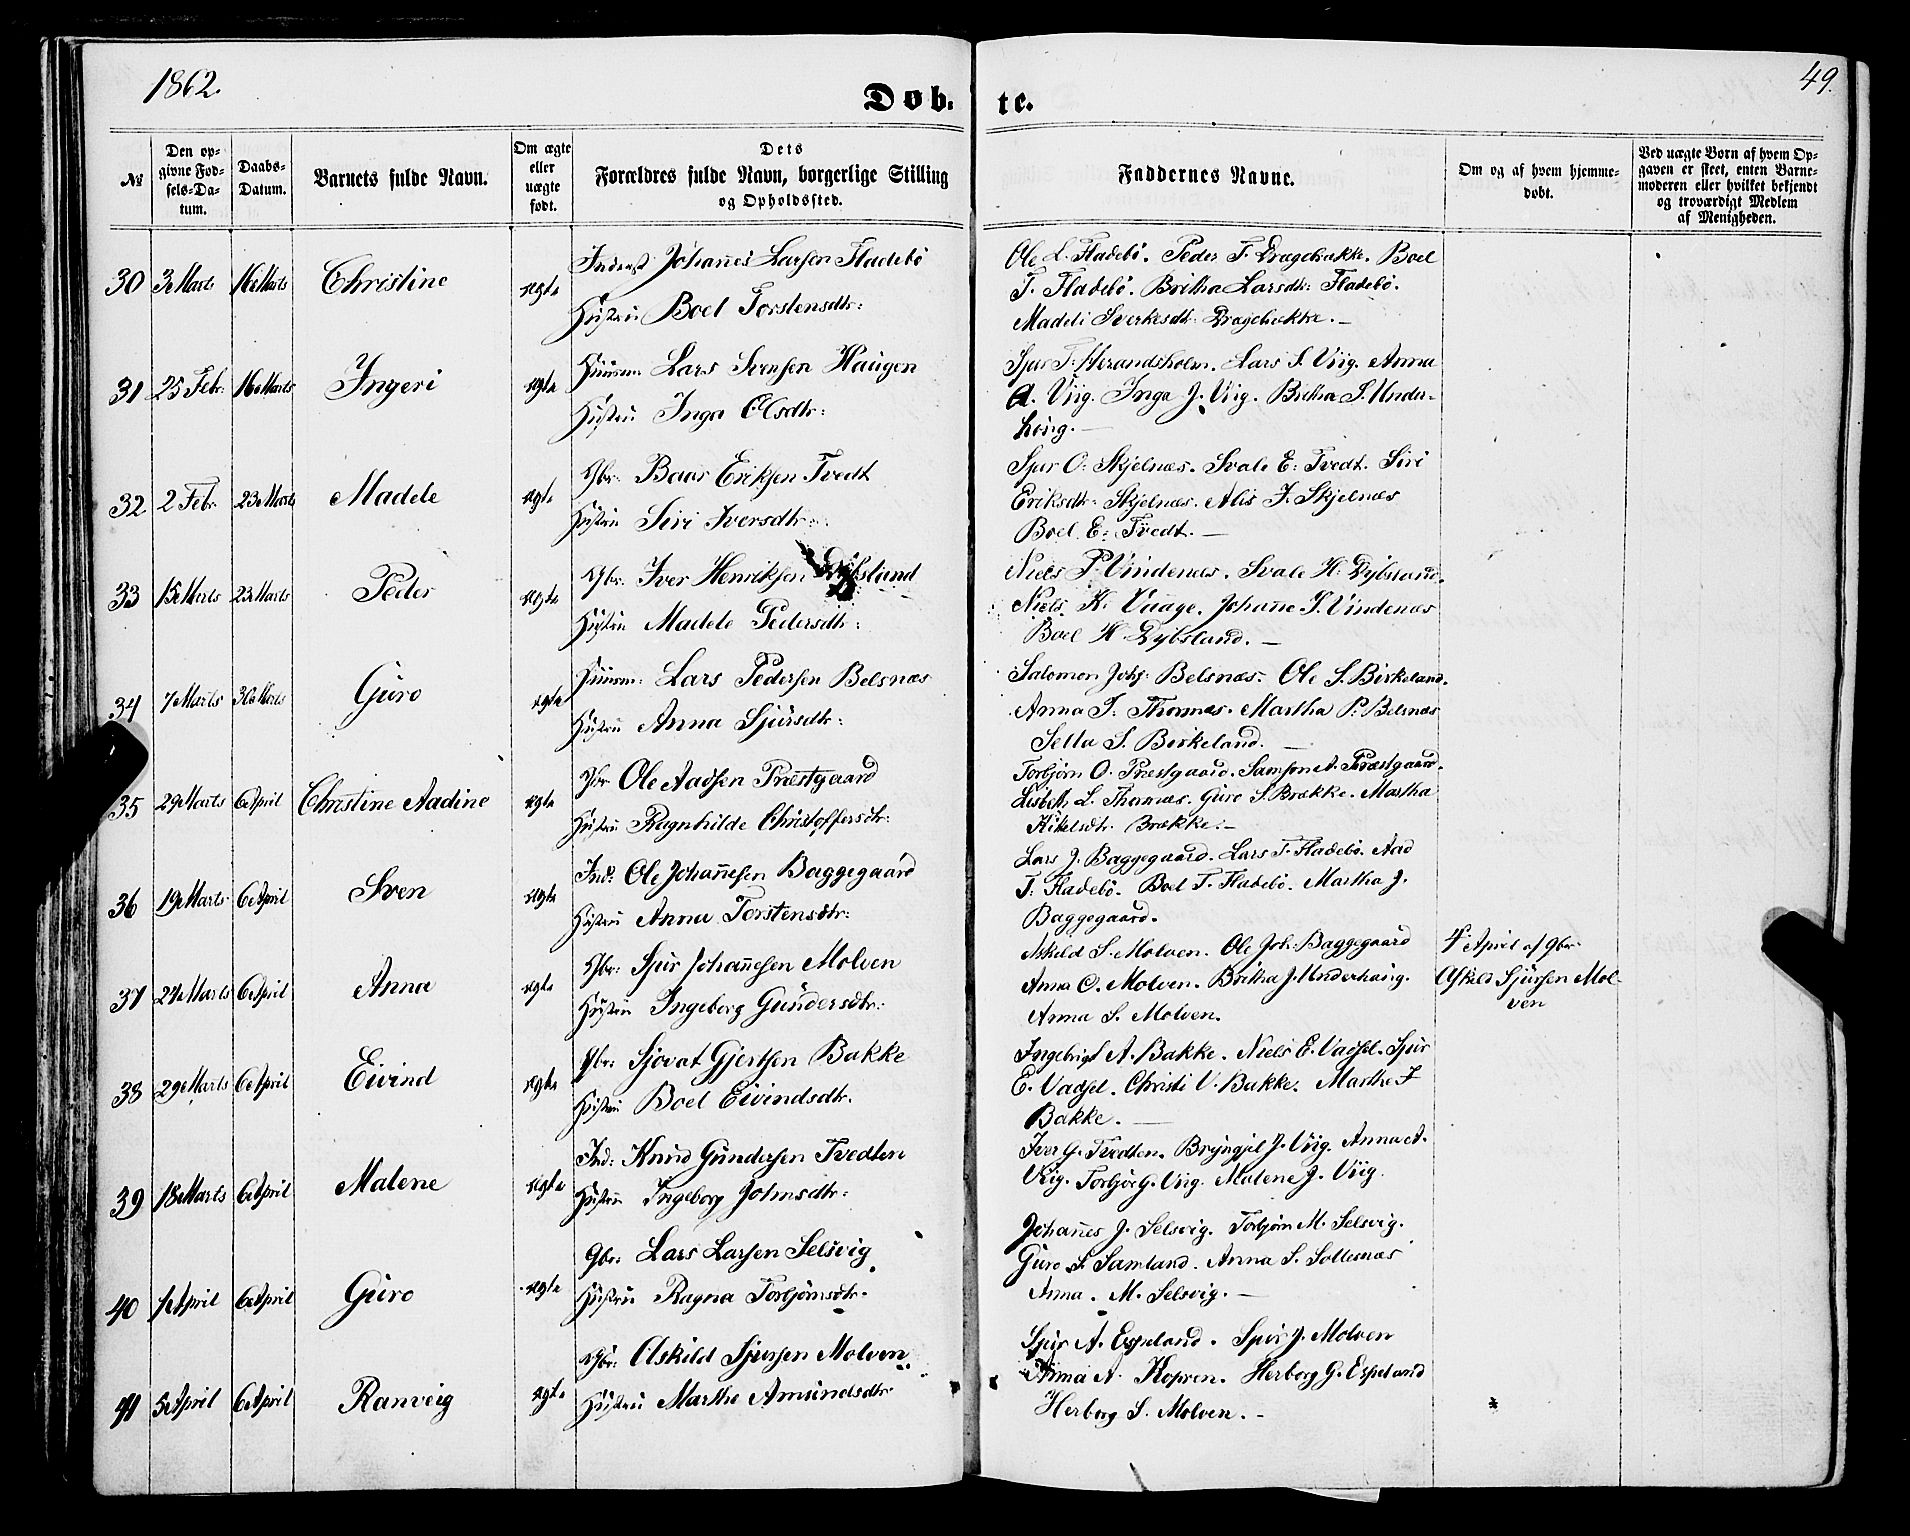 1862.
Døb-
te.
49.
№
Den op-
givne Fød-
sels-Da-
tum.
Daabs-
Datum.
Barnets fulde Navn.
Om ægte
eller
uægte
født.
Dets
Forældres fulde Navn, borgerlige Stilling
og Opholdssted.
Faddernes Navne.
Om og af hvem hjemme-
døbt.
Ved uægte Børn af hvem Op-
gaven er skeet, enten Barne-
moderen eller hvilket bekjendt
og troværdigt Medlem
af Menigheden.
30 3 Marts 16 Marts Christine ægte
Johannes Larsen Fladebø
Hustru Boel Torstensdtr:
Ole L. Fladebø. Peder T. Dragebakke. Boel
T. Fladebø. Britha Larsdtr: Fladebø.
Madeli Sverkesdtr: Dragebakke. –
31 25 Febr. 16 Marts Ingeri ægte
Huusm: Lars Svensen Haugen
Hustru Inga Olsdtr:
Sjur T. Herandsholm. Lars S. Viig. Anna
A. Viig. Inga J. Viig. Britha S. Under-
houg. –
32 2 Febr. 23 Marts Madele ægte
Gbr: Baar Eriksen Tvedt
Hustru Siri Iversdtr:
Sjur O: Skjelnæs. Svale E: Tvedt. Siri
Eriksdtr: Skjelnæs. Alis I. Skjelnæs
Boel E: Tvedt. –
33 15 Marts 23 Marts Peder ægte
Gbr: Iver Henriksen Dybsland
Hustru Madele Pedersdtr:
Niels P. Vindenæs. Svale H. Dybsland.
Niels K. Vaage. Johanne P. Vindenæs
Boel H Dybsland. –
34 7 Marts 30 Marts Guro ægte
Huusm: Lars Pedersen Belsnæs
Hustru Anna Sjursdtr:
Salomon Johs: Belsnæs. Ole S. Birkeland.
Anna T. Thornæs. Martha P. Belsnæs
Sella S. Birkeland. –
35 29 Marts 6 April Christine Aadine ægte
Gbr Ole Aadsen Præstgaard
Hustru Ragnhilde Christoffersdtr:
Torbjørn O. Præstgaard. Samson A. Præstgaard.
L. Thornæs. Guro S. Brække. Martha
Brække. –
36 19 Marts 6 April Sven ægte
Ind: Ole Johannesen Baggegaard
Hustru Anna Torstensdtr:
Lars J. Baggegaard. Lars T. Fladebø. Aad
T. Fladebø. Boel T. Fladebø. Martha J.
Baggegaard.
37 27 Marts 6 April Anna ægte
Gbr: Sjur Johannesen Molven
Hustru Ingeborg Gundersdtr:
Askild S. Molven. Ole Joh: Baggegaard
Anna O. Molven. Britha J. Underhaug.
Anna S. Molven.
4 April af Gbr
Askild Sjursen Mol-
ven
38 29 Marts 6 April Eivind ægte
Gbr: Sjovat Gjertsen Bakke
Hustru Boel Eivindsdtr.
Ingebrigt A. Bakke. Niels E. Vadsel. Sjur
E. Vadsel. Christi V. Bakke. Marthe I
Bakke. –
39 18 Marts 6 April Malene ægte
Ind: Knud Gundersen Tvedten
Hustru Ingeborg Johnsdtr:
Iver G. Tvedten. Brynjel J. Viig. Anna A.
Viig. Torbjør G. Viig. Malene J. Viig.
40 1 April 6 April Guro ægte
Gbr: Lars Larsen Selsvig
Hustru Ragna Torbjørnsdtr.
Johannes J. Selsvig. Torbjørn M. Selsvig.
Guro S. Samland. Anna S. Soltesnæs
Anna. M. Selsvig. –
41 5 April 6 April Ranveig ægte
Gbr: Askild Sjursen Molven
Hustru Marthe Amundsdtr
Sjur A. Espeland. Sjur J. Molven
Anna A. Kopren. Herborg G. Espeland
Herborg S. Molven. –